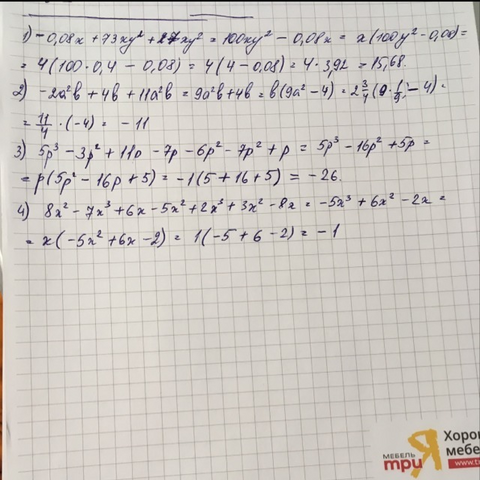 1) -0,08x + 73xy² + 27xy² = 100xy² - 0,08x = x(100y² - 0,08) =
= 4(100·0,4 - 0,08) = 4(4 - 0,08) = 4·3,92 = 15,68.
2) -2a²b + 4b + 11a²b = 9a²b + 4b = b(9a² - 4) = 2 3/4 (9·1/9 - 4) =
= 11/4 · (-4) = -11
3) 5p³ - 3p² + 11p - 7p - 6p² - 7p² + p = 5p³ - 16p² + 5p =
= p(5p² - 16p + 5) = -1(5 + 16 + 5) = -26.
4) 8x² - 7x³ + 6x - 5x² + 2x³ + 3x² - 8x = -5x³ + 6x² - 2x =
= x(-5x² + 6x - 2) = 1(-5 + 6 - 2) = -1
МЕБЕЛЬ
триЯ
Хорош
мебе
www.t